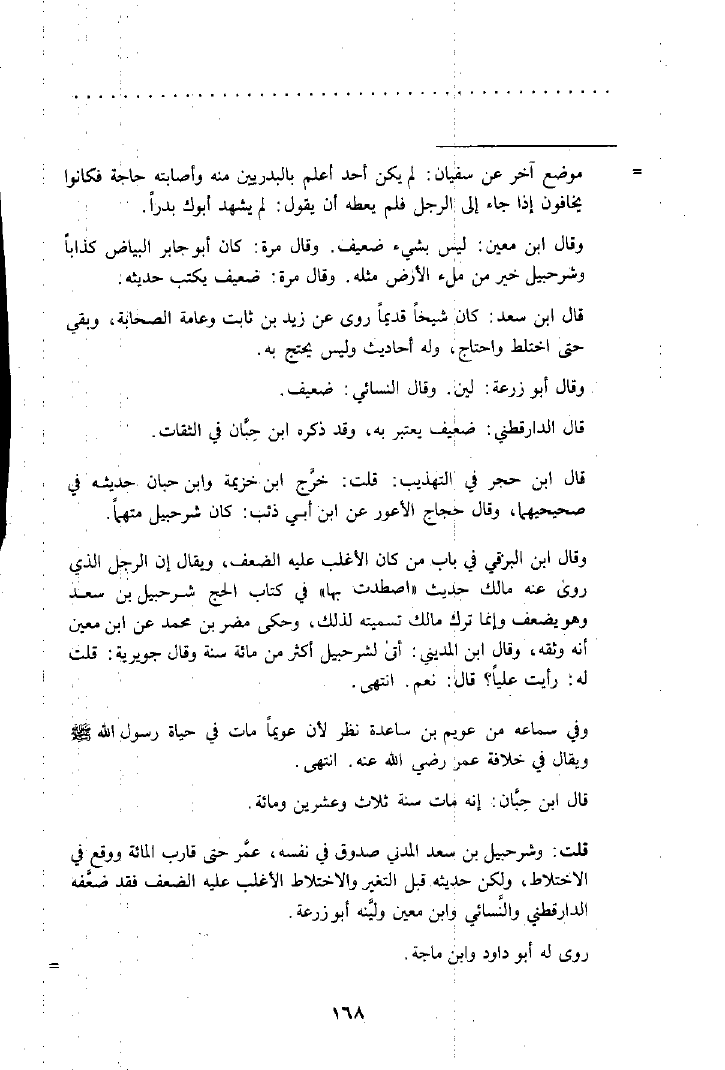 = موضع آخر عن سفيان: لم يكن أحد أعلم بالبدريين منه وأصابته حاجة فكانوا
يخافون إذا جاء إلى الرجل فلم يعطه أن يقول: لم يشهد أبوك بدراً.
وقال ابن معين: ليس بشيء ضعيف. وقال مرة: كان أبو جابر البياض كذاباً
وشرحبيل خير من ملء الأرض مثله. وقال مرة: ضعيف يكتب حديثه.
قال ابن سعد: كان شيخاً قديماً روى عن زيد بن ثابت وعامة الصحابة، وبقي
حتى اختلط واحتاج، وله أحاديث وليس يحتج به.
وقال أبو زرعة: لين. وقال النسائي: ضعيف.
قال الدارقطني: ضعيف يعتبر به، وقد ذكره ابن حِبَّان في الثقات.
قال ابن حجر في التهذيب: قلت: خرَّج ابن خزيمة وابن حبان حديثه في
صحيحيهما، وقال حجاج الأعور عن ابن أبي ذئب: كان شرحبيل متهماً.
وقال ابن البرقي في باب من كان الأغلب عليه الضعف، ويقال إن الرجل الذي
روى عنه مالك حديث «اصطدت بها» في كتاب الحج شرحبيل بن سعد
وهو يضعف وإنما ترك مالك تسميته لذلك، وحكى مضر بن محمد عن ابن معين
أنه وثقه، وقال ابن المديني: أتى لشرحبيل أكثر من مائة سنة وقال جويرية: قلت
له: رأيت علياً؟ قال: نعم. انتهى.
وفي سماعه من عويم بن ساعدة نظر لأن عويماً مات في حياة رسول الله ﷺ
ويقال في خلافة عمر رضي الله عنه. انتهى.
قال ابن حِبَّان: إنه مات سنة ثلاث وعشرين ومائة.
قلت: وشرحبيل بن سعد المدني صدوق في نفسه، عمَّر حتى قارب المائة ووقع في
الاختلاط، ولكن حديثه قبل التغير والاختلاط الأغلب عليه الضعف فقد ضعَّفه
الدارقطني والنَّسائي وابن معين وليَّنه أبو زرعة.
روى له أبو داود وابن ماجة.
=
١٦٨